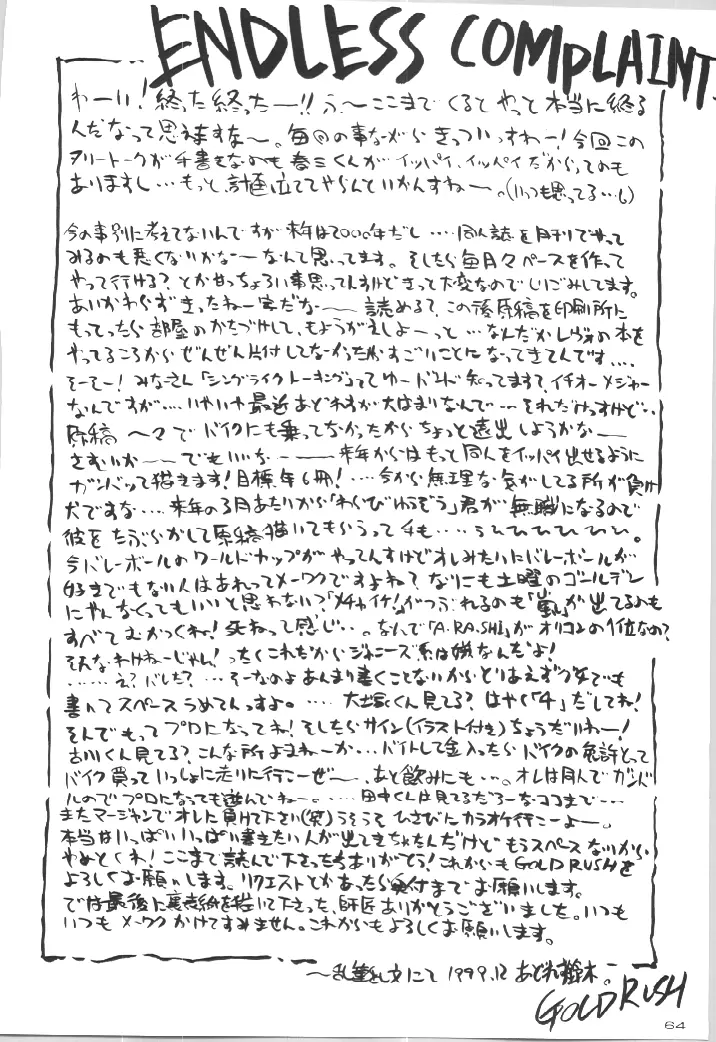 ENDLESS COMPLAINT
わーい!終った終ったー!!う〜ここまでくるとやっと本当に終る
んだなって思えますな〜。毎回の事ながらきっついっすわー!今回この
フリートークが手書きなのも春三くんがイッパイ、イッパイだからってのも
ありますし…もっと計画立ててやらんといかんすねー。(いつも思ってる…)
今の事別に考えてないんですが来年は2000年だし…同人誌を月刊でやって
みるのも悪くないかな〜なんて思ってます。そしたら毎月々ペースを作って
やって行ける?とか甘っちょろい事思ってんすけどきっと大変なのでしいごみしてます。
あいかわらずきったねー字だな〜読める?この後原稿を印刷所に
もってったら部屋のかたづけして、もようがえしよーっと…なんだかレヴォの本を
やってるころからぜんぜん片付してなかったからすごいことになってきてんです…
そーそー!みなさん「シングライクトーキング」ってゆーバンド知ってます?イチオーメジャー
なんですが…いやいや最近あどれすが大はまりなんで…それだけっすけど…
原稿〜々でバイクにも乗ってなかったからちょっと遠出しようかな〜
さむいか〜でもいいな〜来年からはもっと同人をイッパイ出せるように
ガンバって描きます!目標年6冊!…今から無理な気がしてる所が負け
犬ですな…来年の3月あたりから「わらびゆうぞう」君が無職になるので
彼をたぶらかして原稿描いてもらうって手も…うひひひひひひ。
今バレーボールのワールドカップがやってんすけどオレみたいにバレーボールが
好きでもない人はあれってメーワクですよね?なにも土曜のゴールデン
にやんなくってもいいと思わない?「メチャイケ!」がつぶれるのも「嵐」が出てるのも
すべてむかつくね!死ねって感じ…。なんで「A.RA.SHI」がオリコンの1位なの?
そんなわけねーじゃん!ったくこれだからジャニーズ系は嫌なんだよ!
……え?バレた?…そーなのよあんまり書くことないからとりあえず文でも
書いてスペースうめてんっすよ。…大塚くん見てる?はやく「4」だしてね!
そんでもってプロになってね!そしたらサイン(イラスト付き)ちょうだいねー!
古川くん見てる?こんな所よまねーか…バイトして金入ったらバイクの免許とって
バイク買っていっしょに走りに行こーぜ〜、あと飲みにも…。オレは同人でガンバ
ルのでプロになっても遊んでねー。…田中くんは見てるだろーなココまで…
またマージャンでオレに負けて下さい(笑)うそうそひさびにカラオケ行こーよー。
本当はいっぱいいっぱい書きたい人が出てきちゃたんだけどもうスペースないから
やめとくね!ここまで読んで下さった方ありがとう!これからもGOLD RUSHを
よろしくお願いします。リクエストとかあったら受付までお願いします。
では最後に裏表紙を描いて下さった、師匠ありがとうございました。いつも
いつもメーワクかけてすみません。これからもよろしくお願いします。
〜乱筆乱文にて 1999.12 あどれす鈴木。
GOLD RUSH
64